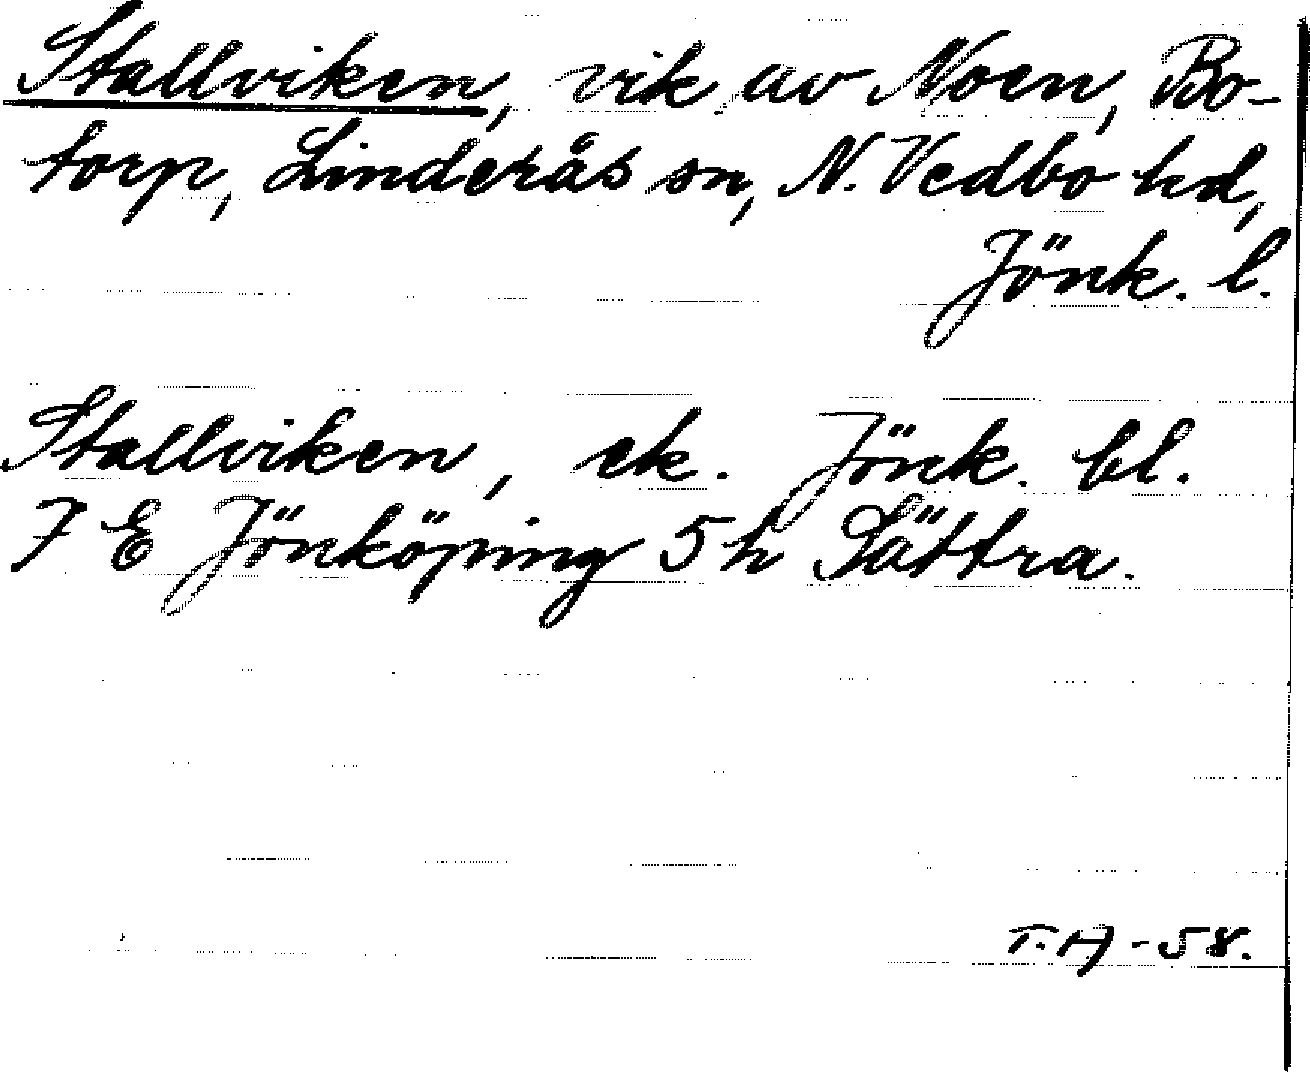 Stallviken, vik av Noen, Bo-
torp, Linderås sn, N. Vedbo hd,
Jönk. l.
Stallviken, ek. Jönk. bl.
7 E Jönköping 5 h Sättra.
T.H -58.